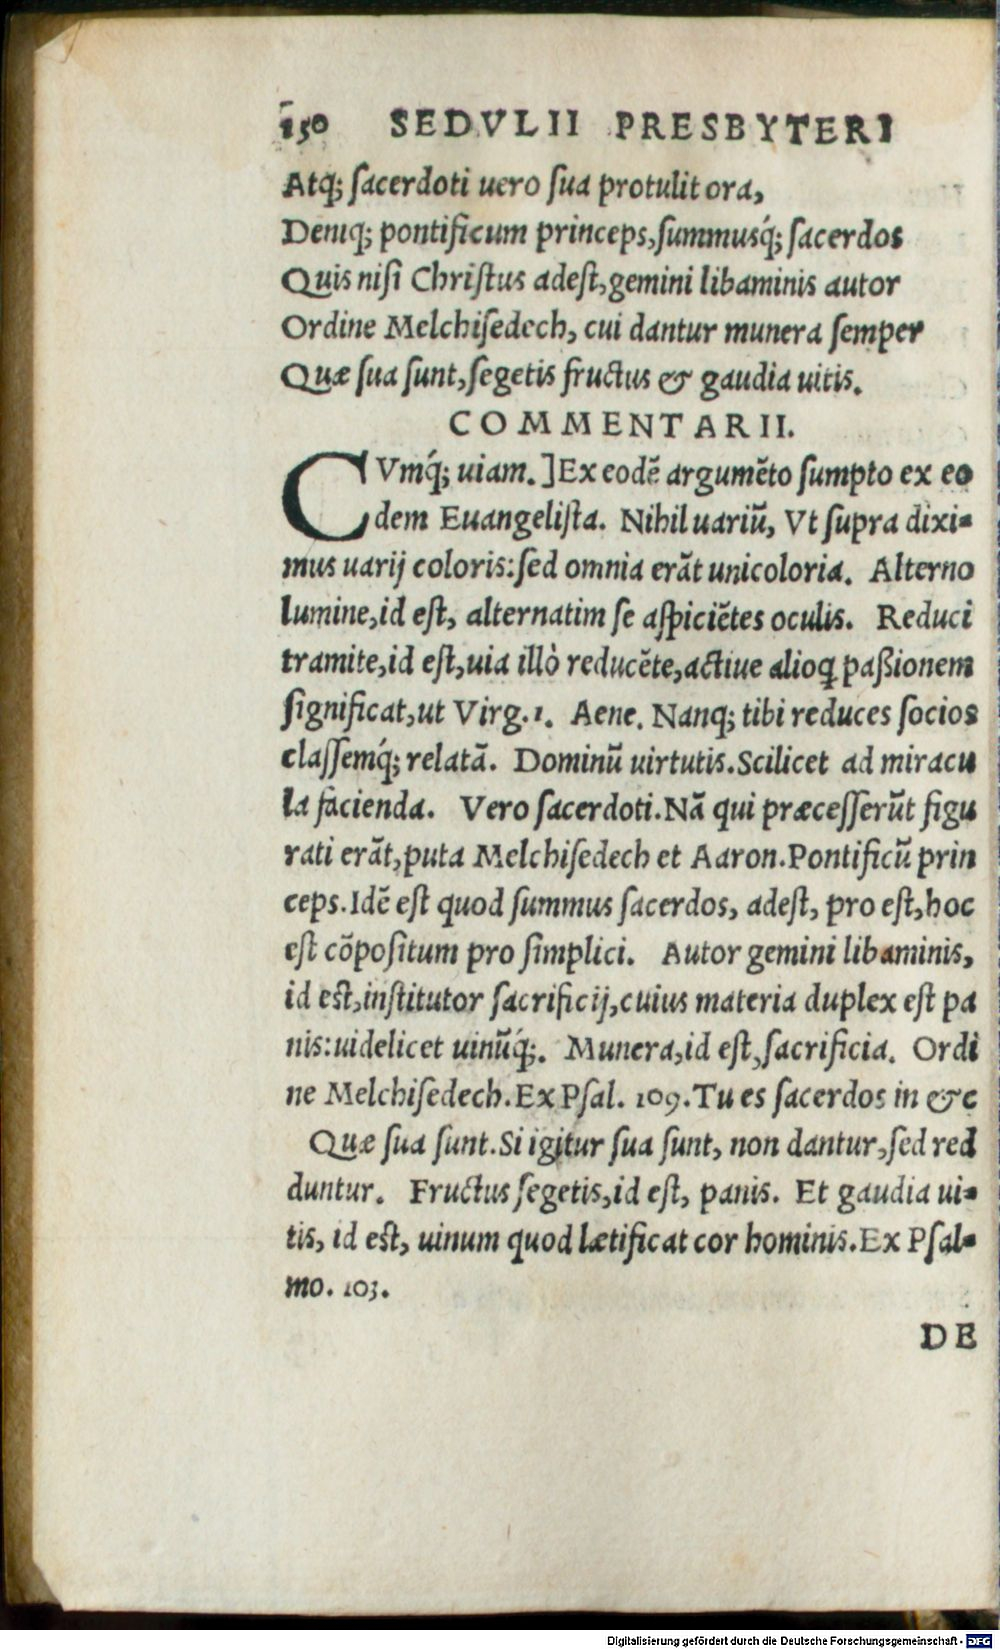 150 SEDVLII PRESBYTERI
Atq́; ſacerdoti uero ſua protulit ora,
Deniq; pontificum princeps, ſummusq́; ſacerdos
Quis niſi Chriſtus adeſt, gemini libaminis autor
Ordine Melchiſedech, cui dantur munera ſemper
Quæ ſua ſunt, ſegetis fructus & gaudia uitis.
COMMENTARII.
CVmq́; uiam.] Ex eodẽ argumẽto ſumpto ex eo
dem Euangeliſta. Nihil uariũ, Vt ſupra dixi-
mus uarij coloris: ſed omnia erãt unicoloria. Alterno
lumine, id eſt, alternatim ſe aſpiciẽtes oculis. Reduci
tramite, id eſt, uia illò reducẽte, actiue alioq paßionem
ſignificat, ut Virg. 1. Aene. Nanq; tibi reduces ſocios
claſſemq́; relatã. Dominũ uirtutis. Scilicet ad miracu
la facienda. Vero ſacerdoti. Nã qui præceſſerũt figu
rati erãt, puta Melchiſedech et Aaron. Pontificũ prin
ceps. Idẽ eſt quod ſummus ſacerdos, adeſt, pro eſt, hoc
eſt cõpoſitum pro ſimplici. Autor gemini libaminis,
id eſt, inſtitutor ſacrificij, cuius materia duplex eſt pa
nis: uidelicet uinũq́;. Munera, id eſt, ſacrificia. Ordi
ne Melchiſedech. Ex Pſal. 109. Tu es ſacerdos in &c
Quæ ſua ſunt. Si igitur ſua ſunt, non dantur, ſed red
duntur. Fructus ſegetis, id eſt, panis. Et gaudia ui-
tis, id eſt, uinum quod lætificat cor hominis. Ex Pſal-
mo. 103.
DE
Digitalisierung gefördert durch die Deutsche Forschungsgemeinschaft - DFG